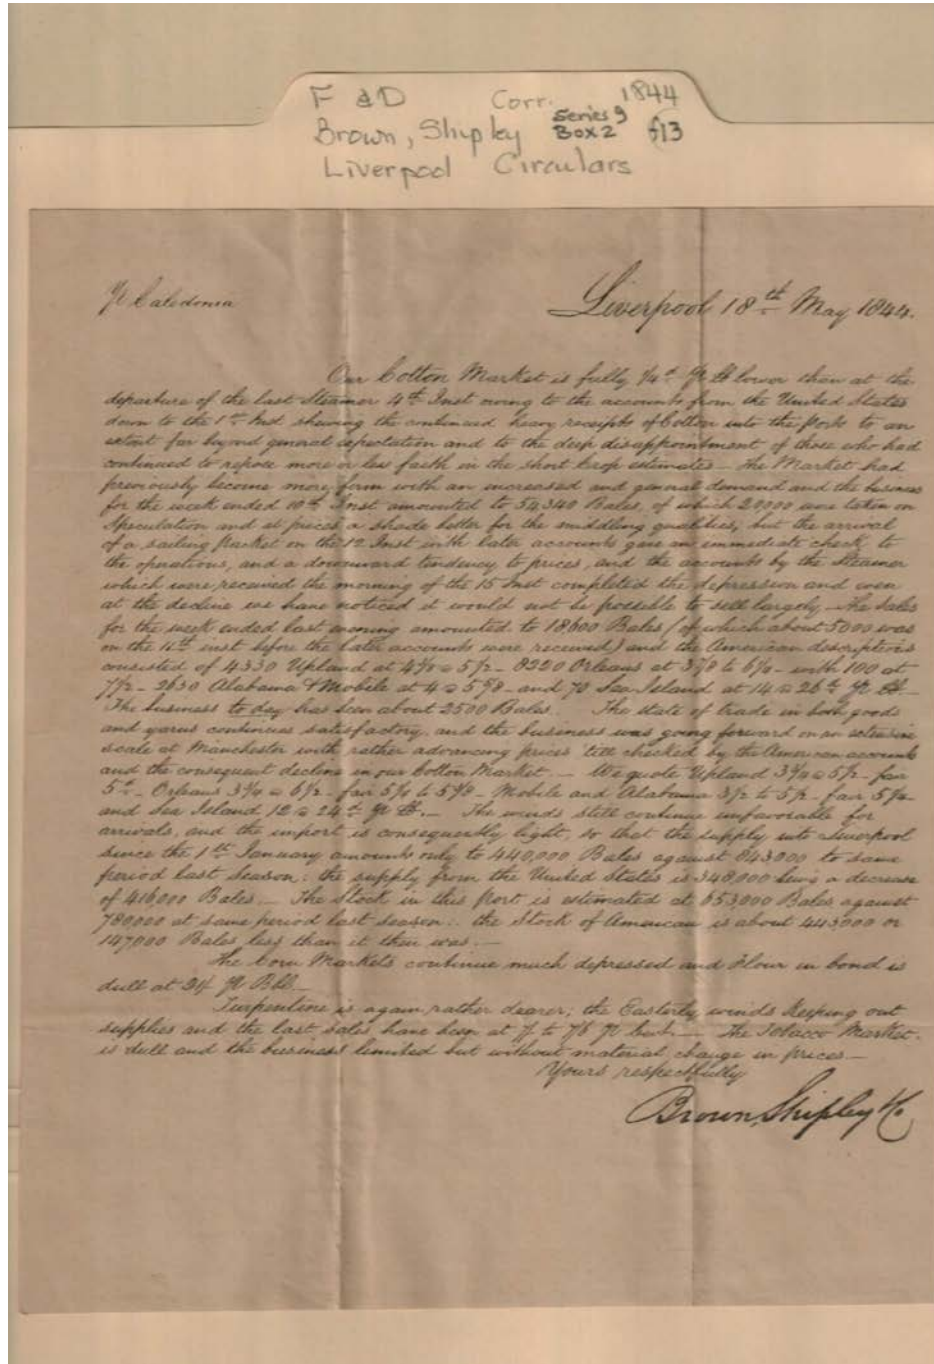 F & D Corr. 1844
Brown, Shipley Series 9 Box 2 f13
Liverpool Circulars
Pr Caledonia
Liverpool 18th May 1844.
Our Cotton Market is fully 1/4d Pr lb lower than at the
departure of the last Steamer 4th Inst owing to the accounts from the United States
down to the 1st Inst shewing the continued heavy receipts of Cotton into the Ports to an
extent far beyond general expectation and to the deep disappointment of those who had
continued to repose more or less faith in the short Crop estimates - The Market had
previously become more firm with an increased and general demand and the business
for the week ended 10th Inst amounted to 54340 Bales, of which 20000 were taken on
Speculation and at prices a shade better for the middling qualities, but the arrival
of a sailing Packet on the 12 Inst with later accounts gave an immediate check to
the operations, and a downward tendency to prices, and the accounts by the Steamer
which were received the morning of the 15 Inst completed the depression and even
at the decline we have noticed it would not be possible to sell largely - The Sales
for the week ended last evening amounted to 18600 Bales (of which about 5000 was
on the 11th inst before the later accounts were received) and the American descriptions
consisted of 4330 Upland at @ 5 1/2 - 8220 Orleans at to - with 100 at
7 1/2 - 2630 Alabama & Mobile at 4 @ 5 5/8 - and 70 Sea Island at 14 @ 26d Pr lb -
The business to day has been about 2500 Bales. The state of trade in both goods
and yarns continues satisfactory, and the business was going forward on an extensive
scale at Manchester with rather advancing prices 'till checked by the American accounts
and the consequent decline in our Cotton Market. - We quote Upland @ 5 1/2 - fair
5d - Orleans @ 6 1/2 - fair to - Mobile and Alabama 3 1/2 to 5 1/2 - fair
and Sea Island 12 @ 24d Pr lb. - The winds still continue unfavorable for
arrivals, and the import is consequently light, so that the supply into Liverpool
since the 1st January amounts only to 440,000 Bales against 843000 to same
period last Season: the supply from the United States is 348,000 being a decrease
of 416000 Bales. - The Stock in this Port is estimated at 653,000 Bales against
780,000 at same period last season: the Stock of American is about 443,000 or
147000 Bales less than it then was. -
The Corn Markets continue much depressed and Flour in bond is
dull at 24/ Pr Bbl -
Turpentine is again rather dearer, the Easterly winds keeping out
supplies and the last sales have been at 7/ to 7/6 Pr Cwt. - The Tobacco Market
is dull and the business limited but without material change in prices -
Yours respectfully
Brown, Shipley & Co